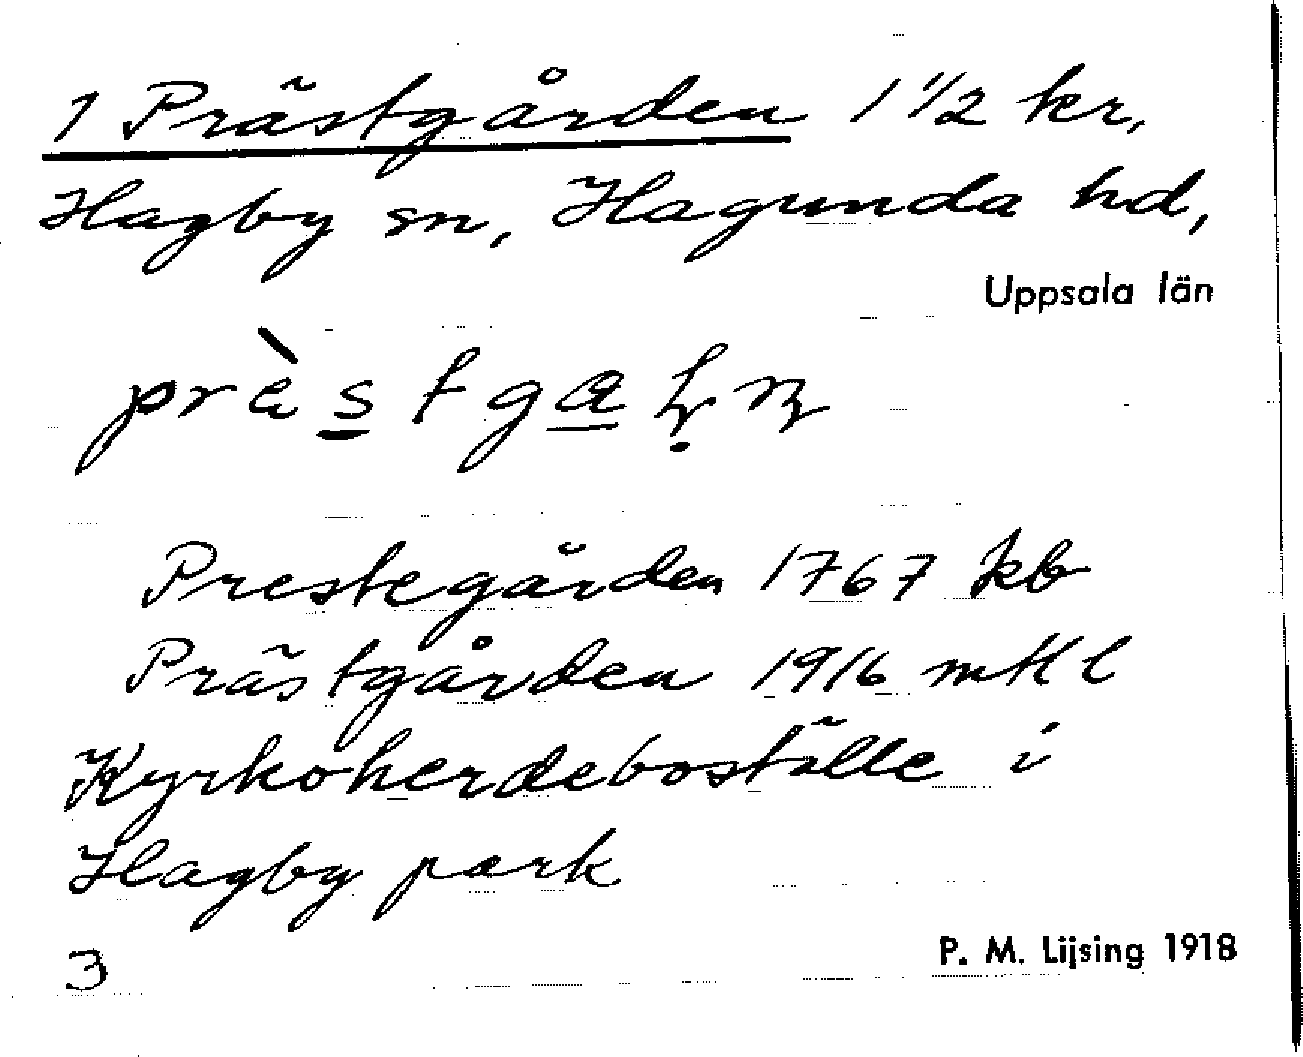 1 Prästgården 1 1/2 kr,
Hagby sn, Hagunda hd,
Uppsala län
prästga
Prestegården 1767 kb
Prästgården 1916 mtl
Kyrkoherdeboställe i
Hagby park
3
P. M. Lijsing 1918